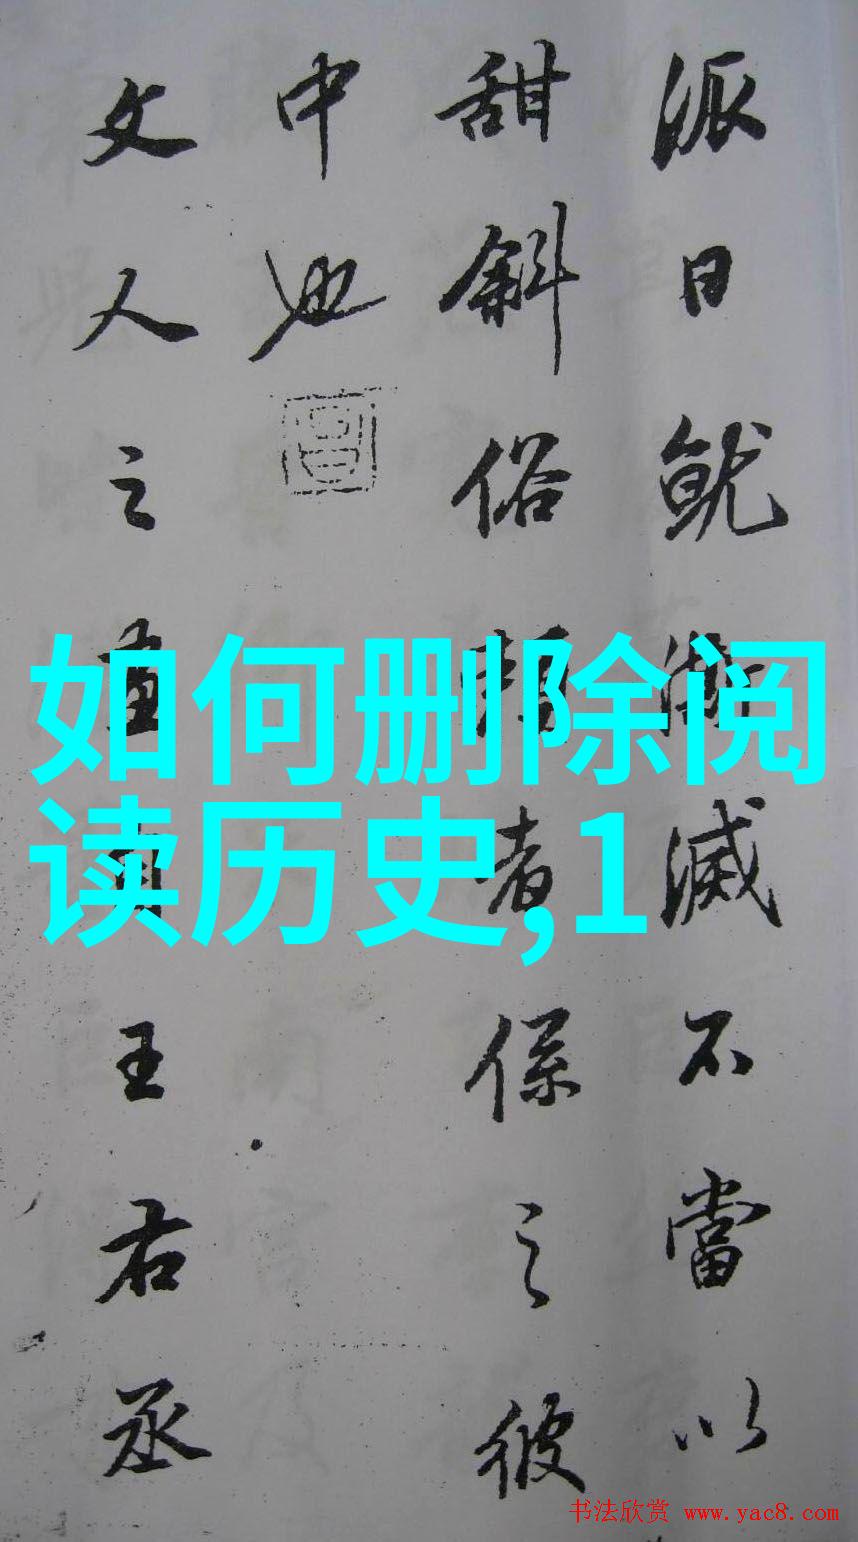 派日就澌滅不當以
甜斜俗賴者係之彼
中也
文人之畫自王右丞
如何删除阅
读历史,1
书法欣赏 www.yac8.com